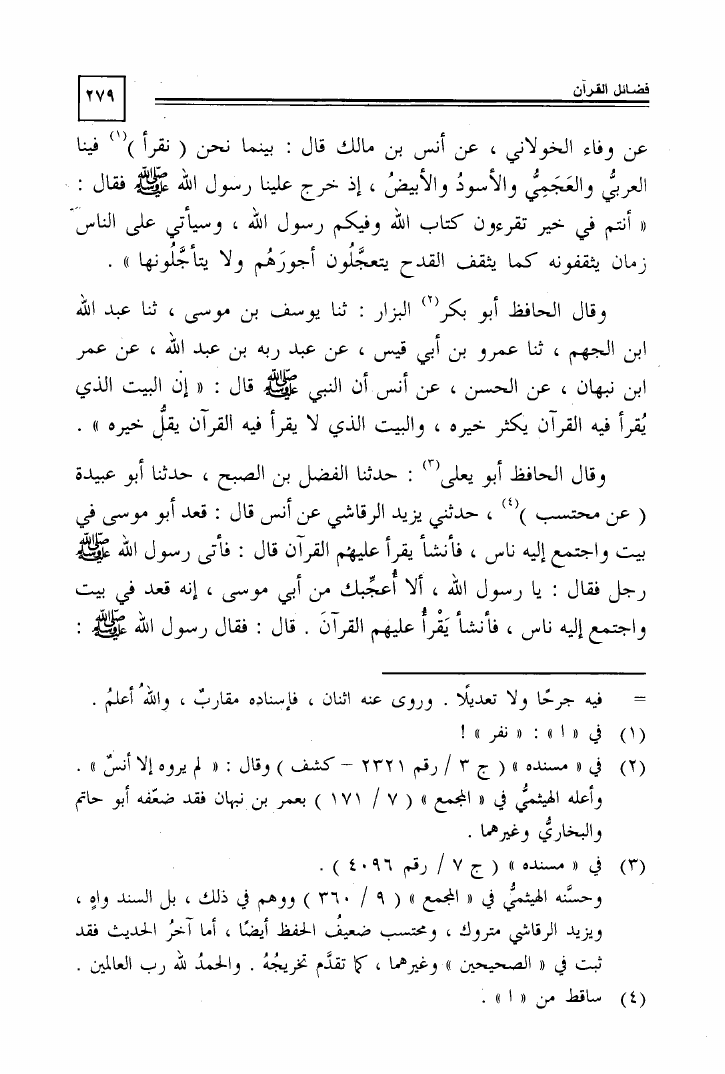 فضائل القرآن
٢٧٩
عن وفاء الخولاني ، عن أنس بن مالك قال : بينما نحن ( نقرأ )(١) فينا
العربيُّ والعَجَمِيُّ والأسودُ والأبيضُ ، إذ خرج علينا رسول الله ﷺ فقال :
« أنتم في خير تقرءون كتاب الله وفيكم رسول الله ، وسيأتي على الناس
زمان يثقفونه كما يثقف القدح يتعجَّلُون أجورَهُم ولا يتأجَّلُونها » .
وقال الحافظ أبو بكر(٢) البزار : ثنا يوسف بن موسى ، ثنا عبد الله
ابن الجهم ، ثنا عمرو بن أبي قيس ، عن عبد ربه بن عبد الله ، عن عمر
ابن نبهان ، عن الحسن ، عن أنس أن النبي ﷺ قال : « إن البيت الذي
يُقرأ فيه القرآن يكثر خيره ، والبيت الذي لا يقرأ فيه القرآن يقلُّ خيره » .
وقال الحافظ أبو يعلى(٣) : حدثنا الفضل بن الصبح ، حدثنا أبو عبيدة
( عن محتسب )(٤) ، حدثني يزيد الرقاشي عن أنس قال : قعد أبو موسى في
بيت واجتمع إليه ناس ، فأنشأ يقرأ عليهم القرآن قال : فأتى رسول الله ﷺ
رجل فقال : يا رسول الله ، ألا أُعجِّبك من أبي موسى ، إنه قعد في بيت
واجتمع إليه ناس ، فأنشأ يَقْرأُ عليهم القرآنَ . قال : فقال رسول الله ﷺ :
= فيه جرحًا ولا تعديلًا . وروى عنه اثنان ، فإسناده مقاربٌ ، واللهُ أعلمُ .
(١) في « ا » : « نفر » !
(٢) في « مسنده » ( ج ٣ / رقم ٢٣٢١ – كشف ) وقال : « لم يروه إلا أنسٌ » .
وأعله الهيثميُّ في « المجمع » ( ٧ / ١٧١ ) بعمر بن نبهان فقد ضعّفه أبو حاتم
والبخاريُّ وغيرهما .
(٣) في « مسنده » ( ج ٧ / رقم ٤٠٩٦ ) .
وحسَّنه الهيثميُّ في « المجمع » ( ٩ / ٣٦٠ ) ووهم في ذلك ، بل السند واهٍ ،
ويزيد الرقاشي متروك ، ومحتسب ضعيفُ الحفظ أيضًا ، أما آخرُ الحديث فقد
ثبت في « الصحيحين » وغيرهما ، كما تقدَّم تخريجُهُ . والحمدُ لله رب العالمين .
(٤) ساقط من « ا » .